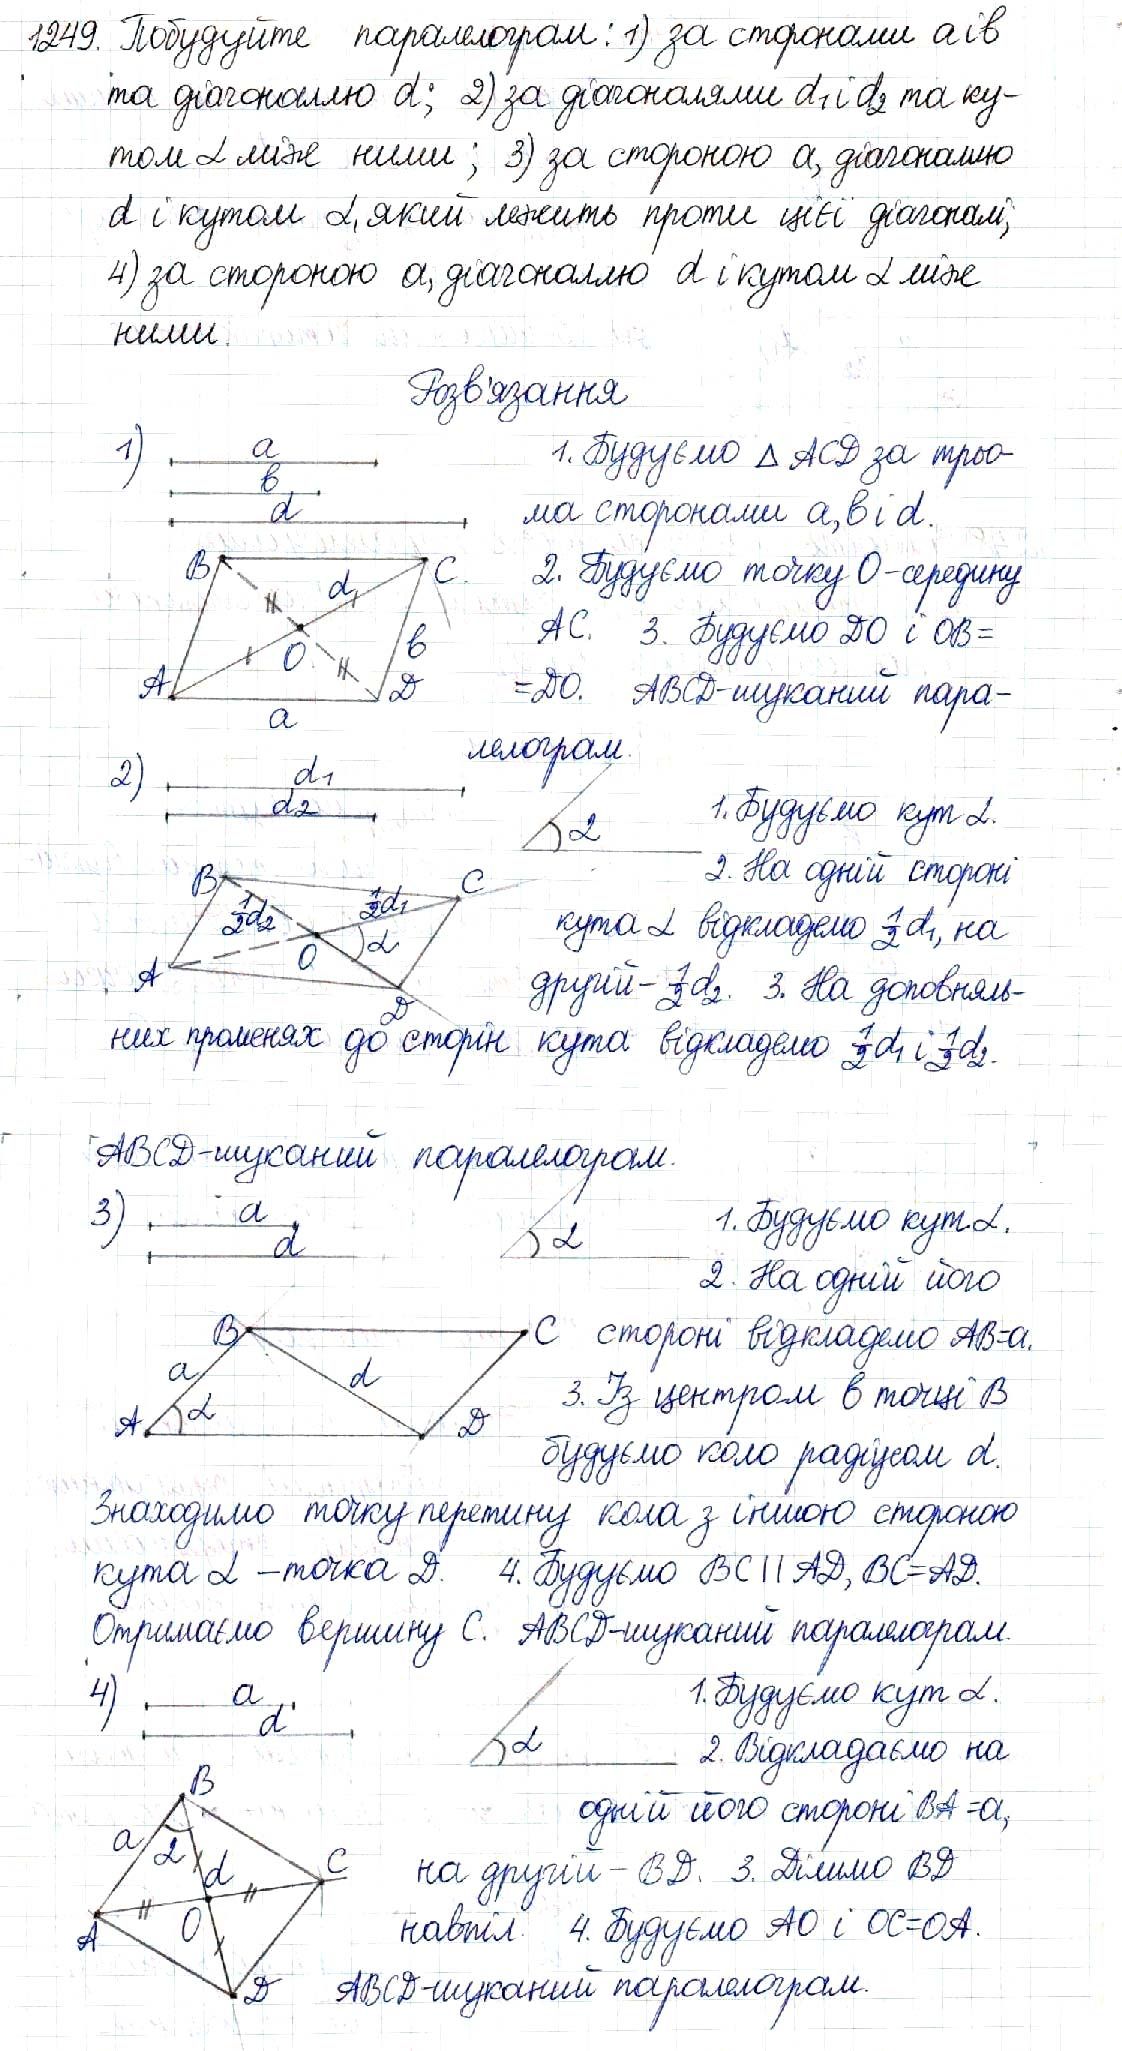 1249. Побудуйте паралелограм: 1) за сторонами a і b
та діагоналлю d; 2) за діагоналями d₁ і d₂ та ку-
том α між ними; 3) за стороною a, діагоналлю
d і кутом α, який лежить проти цієї діагоналі;
4) за стороною a, діагоналлю d і кутом α між
ними.
Розв'язання
1) a
b
d
1. Будуємо △ ACD за трьо-
ма сторонами a, b і d.
B C d₁ O b A D a
2. Будуємо точку O - середину
AC. 3. Будуємо DO і OB =
= DO. ABCD - шуканий пара-
лелограм.
2) d₁
d₂
α
1. Будуємо кут α.
2. На одній стороні
B C ½d₂ ½d₁ O α A D
кута α відкладемо ½d₁, на
другій - ½d₂. 3. На доповняль-
них променях до сторін кута відкладемо ½d₁ і ½d₂.
ABCD - шуканий паралелограм.
3) a
d
α
1. Будуємо кут α.
2. На одній його
B C a d A α D
стороні відкладемо AB = a.
3. Із центром в точці B
будуємо коло радіусом d.
Знаходимо точку перетину кола з іншою стороною
кута α - точка D. 4. Будуємо BC || AD, BC = AD.
Отримаємо вершину C. ABCD - шуканий паралелограм.
4) a
d
α
1. Будуємо кут α.
2. Відкладаємо на
B a α d C A O D
одній його стороні BA = a,
на другій - BD. 3. Ділимо BD
навпіл. 4. Будуємо AO і OC = OA.
ABCD - шуканий паралелограм.